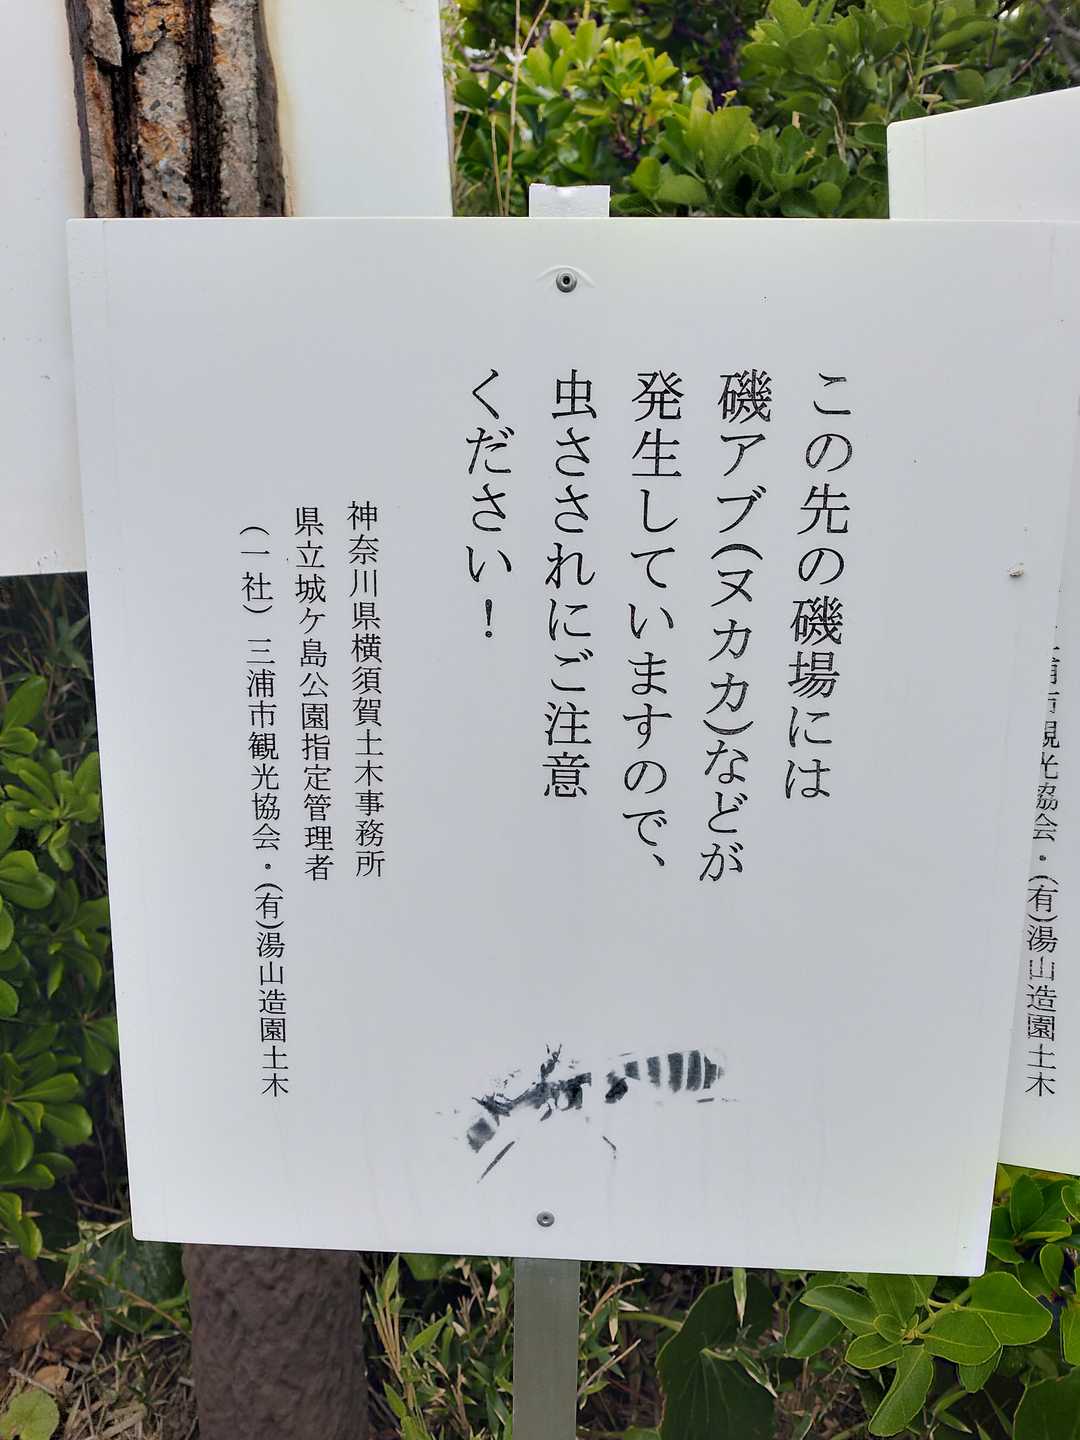 この先の磯場には
磯アブ(ヌカカ)などが
発生していますので、
虫さされにご注意
ください！
神奈川県横須賀土木事務所
県立城ケ島公園指定管理者
（一社）三浦市観光協会・(有)湯山造園土木
浦市観光協会・(有)湯山造園土木